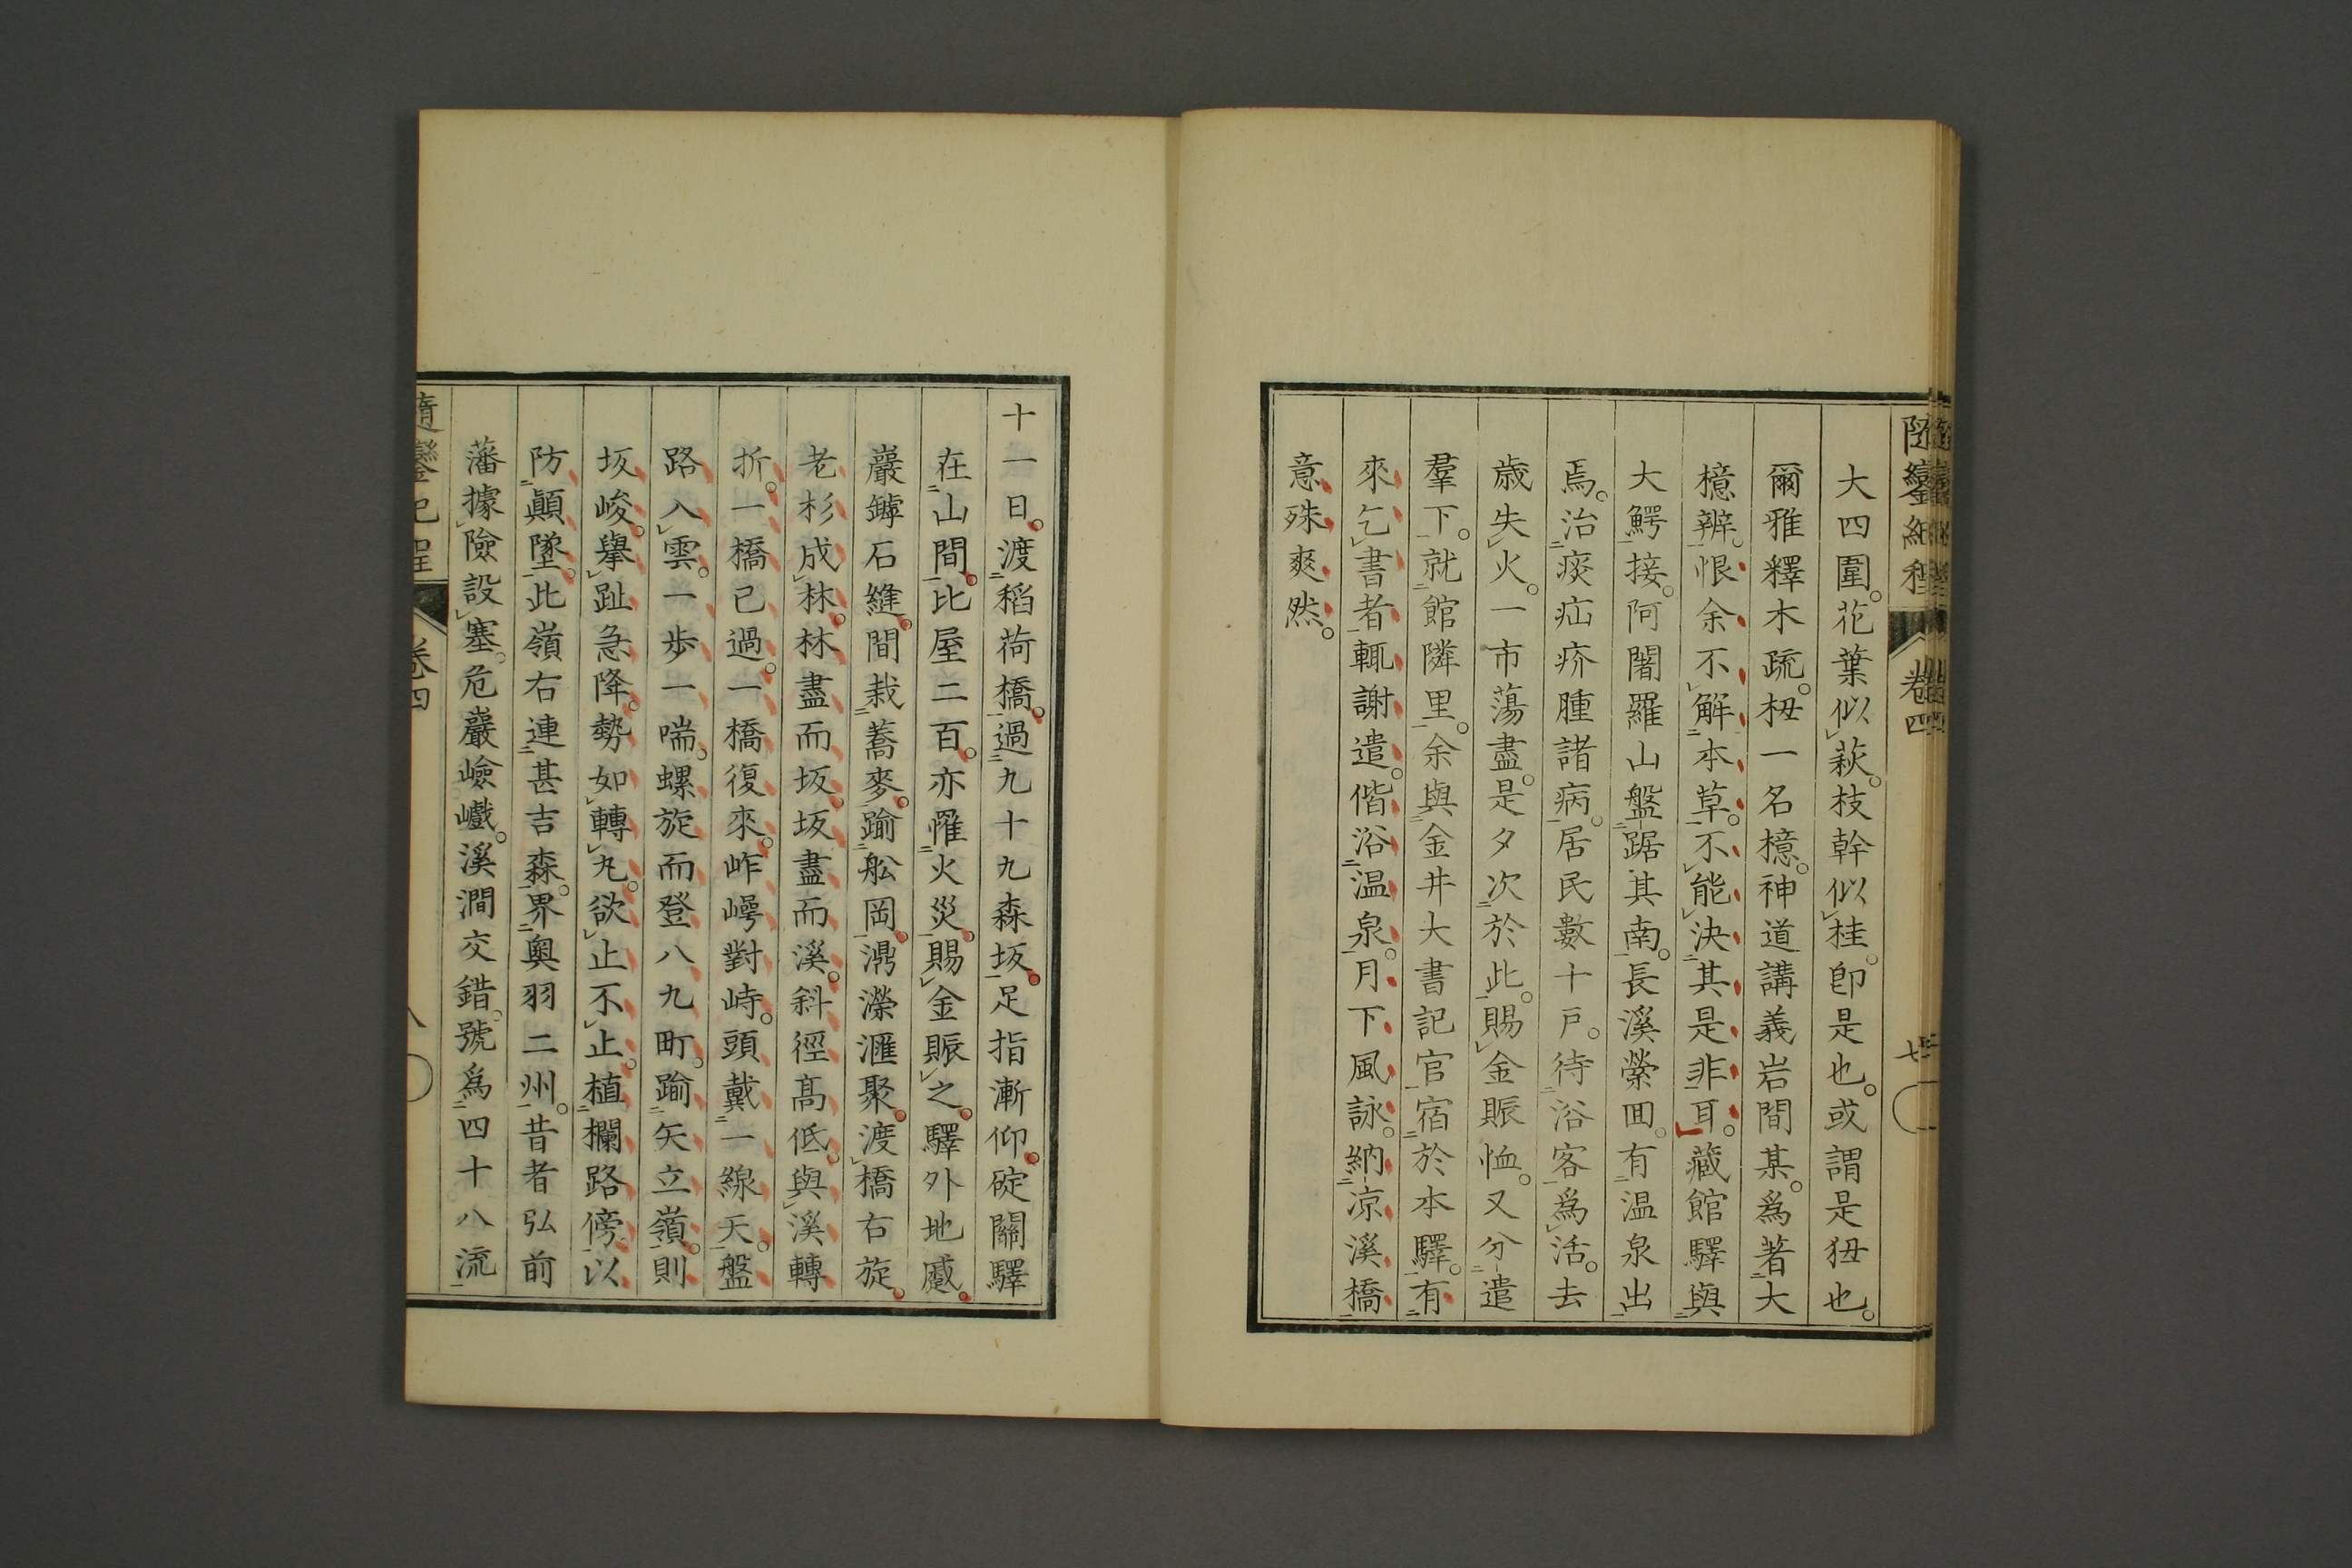 隨鑾紀程 卷四 七
大四圍。花葉似萩。枝幹似桂。卽是也。或謂是𣏾也。
爾雅釋木疏。杻一名檍。神道講義岩間某。爲著大
檍辨。恨余不解本草。不能決其是非耳。藏館驛與
大鰐接。阿闍羅山盤踞其南。長溪縈囬。有温泉出
焉。治痰疝疥腫諸病。居民數十戶。待浴客爲活。去
歳失火。一市蕩盡。是夕次於此。賜金賑恤。又分遣
羣下。就館隣里。余與金井大書記官宿於本驛。有
來乞書者。輒謝遣。偕浴温泉。月下風詠。納凉溪橋。
意殊爽然。
十一日。渡稻荷橋。過九十九森坂。足指漸仰。碇關驛
在山間。比屋二百。亦罹火災。賜金賑之。驛外地蹙。
巖罅石縫。間栽蕎麥。踰舩岡。瀞濚滙聚。渡橋右旋。
老杉成林。林盡而坂。坂盡而溪。斜徑高低。與溪轉
折。一橋已過。一橋復來。岞㟧對峙。頭戴一線天。盤
路入雲。一歩一喘。螺旋而登八九町。踰矢立嶺。則
坂峻。擧趾急降。勢如轉丸。欲止不止。植欄路傍。以
防顚墜。此嶺右連甚吉森。界奧羽二州。昔者弘前
藩據險設塞。危巖嶮巇。溪澗交錯。號爲四十八流
隨鑾紀程 卷四 八